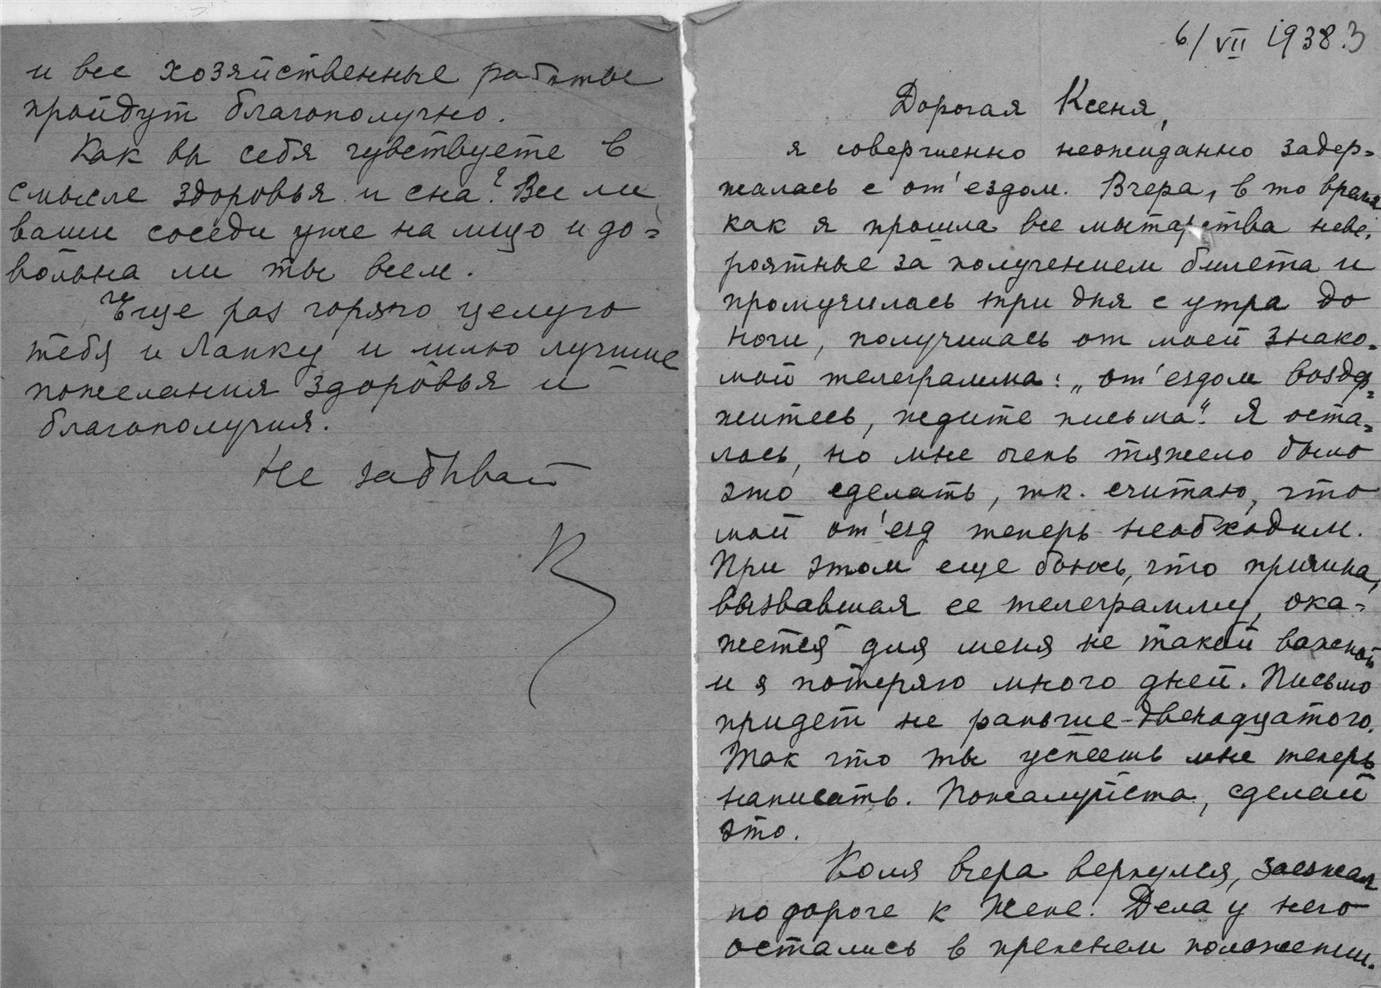 и все хозяйственные работы
пройдут благополучно.
Как вы себя чувствуете в
смысле здоровья и сна? Все ли
ваши соседи уже на лицо и до=
вольна ли ты всем.
Еще раз горячо целую
тебя и Лапку и шлю лучшие
пожелания здоровья и
благополучия.
Не забывай
6/VII 1938.
Дорогая Ксеня,
я совершенно неожиданно задер=
жалась с от'ездом. Вчера, в то время
как я прошла все мытарства неве=
роятные за получением билета и
промучилась три дня с утра до
ночи, получилась от моей знако=
мой телеграмма: „от'ездом воздер=
житесь, ждите письма". Я оста=
лась, но мне очень тяжело было
это сделать, т.к. считаю, что
мой от'езд теперь необходим.
При этом еще боюсь, что причина,
вызвавшая ее телеграмму, ока=
жется для меня не такой важной
и я потеряю много дней. Письмо
придет не раньше двенадцатого.
Так что ты успеешь мне теперь
написать. Пожалуйста, сделай
это.
Коля вчера вернулся, заезжал
по дороге к Жене. Дела у него
остались в прежнем положении.